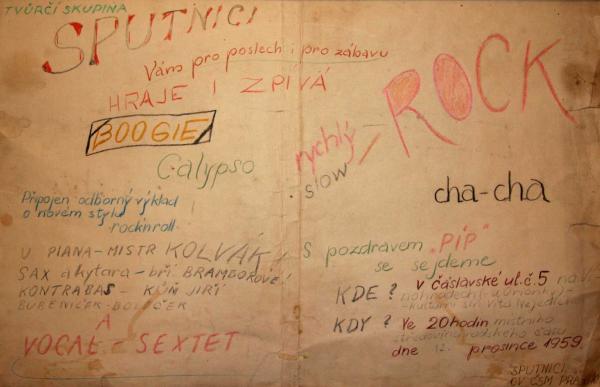 TVŮRČÍ SKUPINA
SPUTNICI
Vám pro poslech i pro zábavu
HRAJE I ZPÍVÁ
BOOGIE
Calypso
rychlý
slow
ROCK
cha-cha
Připojen odborný výklad
o novém stylu
rocknroll
U PIANA - MISTR KOLVÁK
SAX a kytara - bří. BRAMBOROVÉ
KONTRABAS - KŮŇ JIŘÍ
BUBENÍČEK -
A
VOCAL - SEXTET
S pozdravem "PÍP"
se sejdeme
KDE? v čáslavské ul. č. 5 na V.
KDY? Ve 20 hodin místního
středoevropského času
dne 12. prosince 1959.
SPUTNICI
OV ČSM